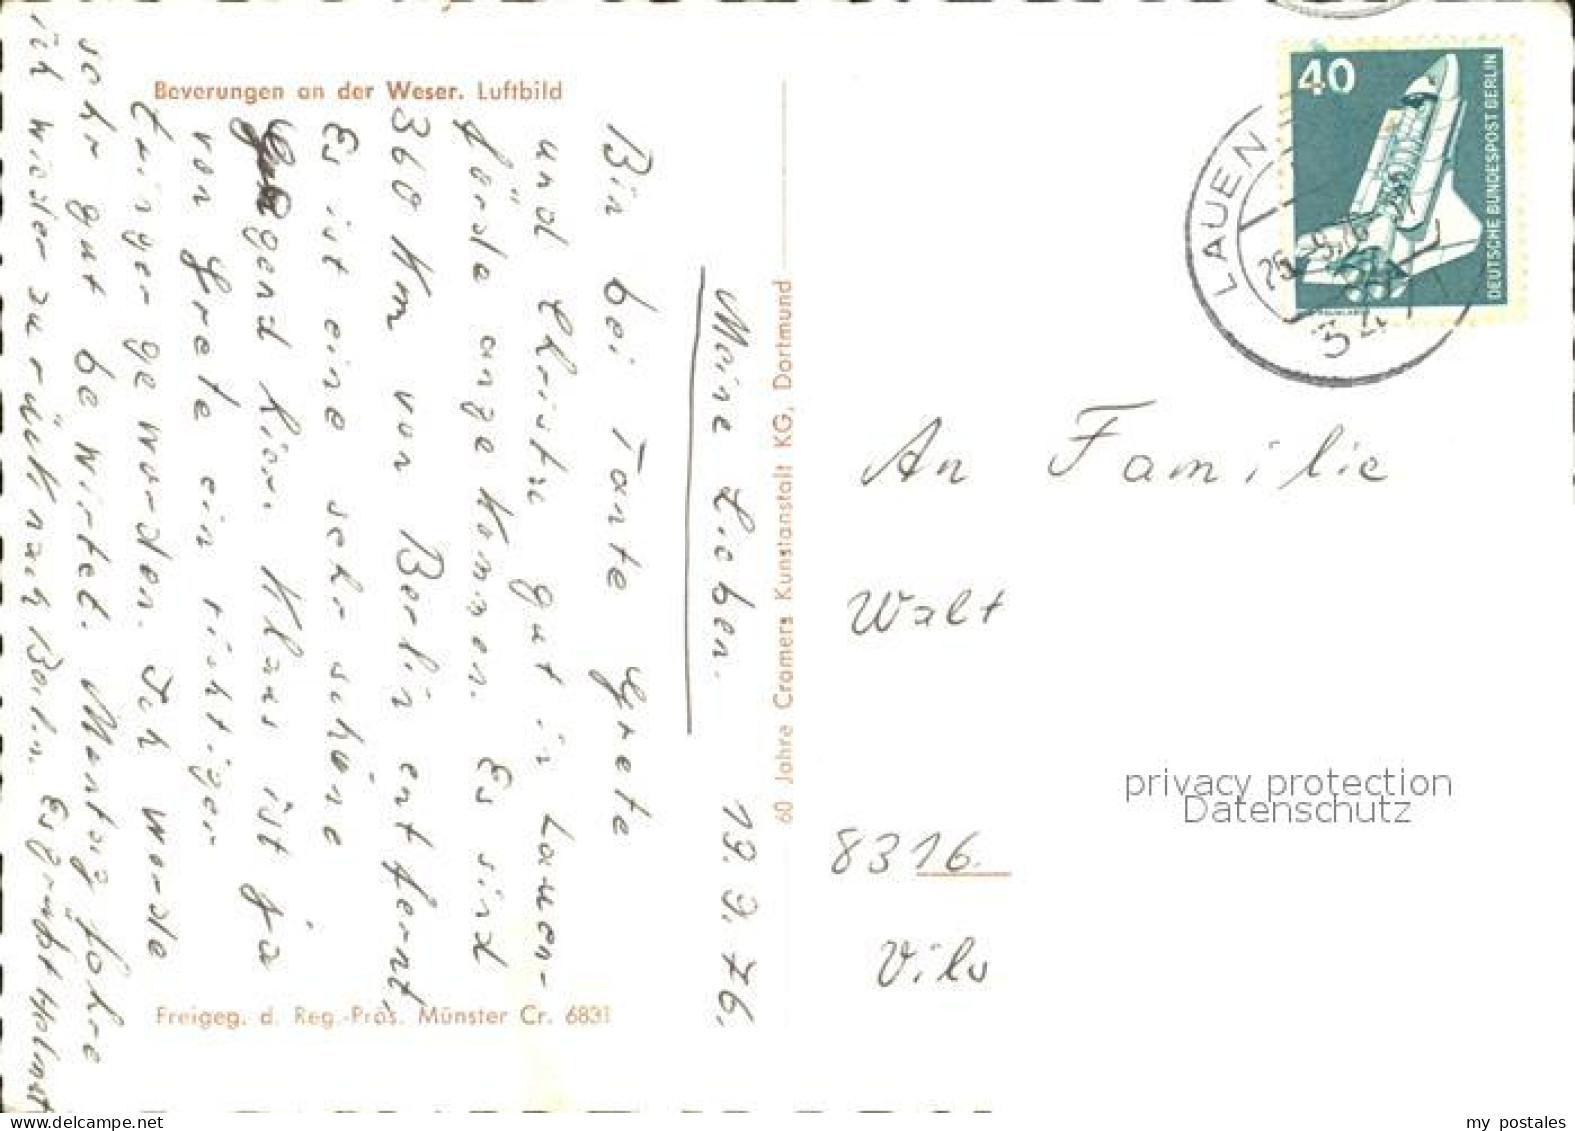 Beverungen an der Weser. Luftbild
Meine Lieben. 19.9.76.
Bin bei Tante Grete
und Christa gut in Lauen-
förde angekommen. Es sind
360 Km von Berlin entfernt,
Es ist eine sehr schöne
Gegend hier. Klaus ist ja
von Grete ein richtiger
geworden. Ich werde
sehr gut bewirtet. Montag fahre
ich wieder zurück nach Berlin. Es grüßt Helmut
60 Jahre Cramers Kunstanstalt KG, Dortmund
Freigeg. d. Reg.-Präs. Münster Cr. 6831
40
DEUTSCHE BUNDESPOST BERLIN
LAUEN
An Familie
Walt
privacy protection
Datenschutz
8316.
Vils
my postales
www.delcampe.net